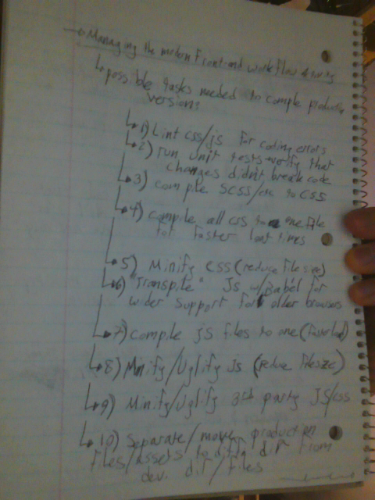 → Managing the modern Front-end workflow
↳ possible tasks needed to compile production
versions
↳ 1) Lint css/js for coding errors
↳ 2) run unit tests verify that
changes didn't break code
↳ 3) compile scss/etc to css
↳ 4) compile all css to one file
for faster load times
↳ 5) Minify CSS (reduce file size)
↳ 6) "Transpile" JS w/Babel for
wider support for older browsers
↳ 7) compile js files to one
↳ 8) Minify/Uglify Js (reduce filesize)
↳ 9) Minify/Uglify 3rd party JS/css
↳ 10) separate/move production
files/assets to dir from
dev. dir/files